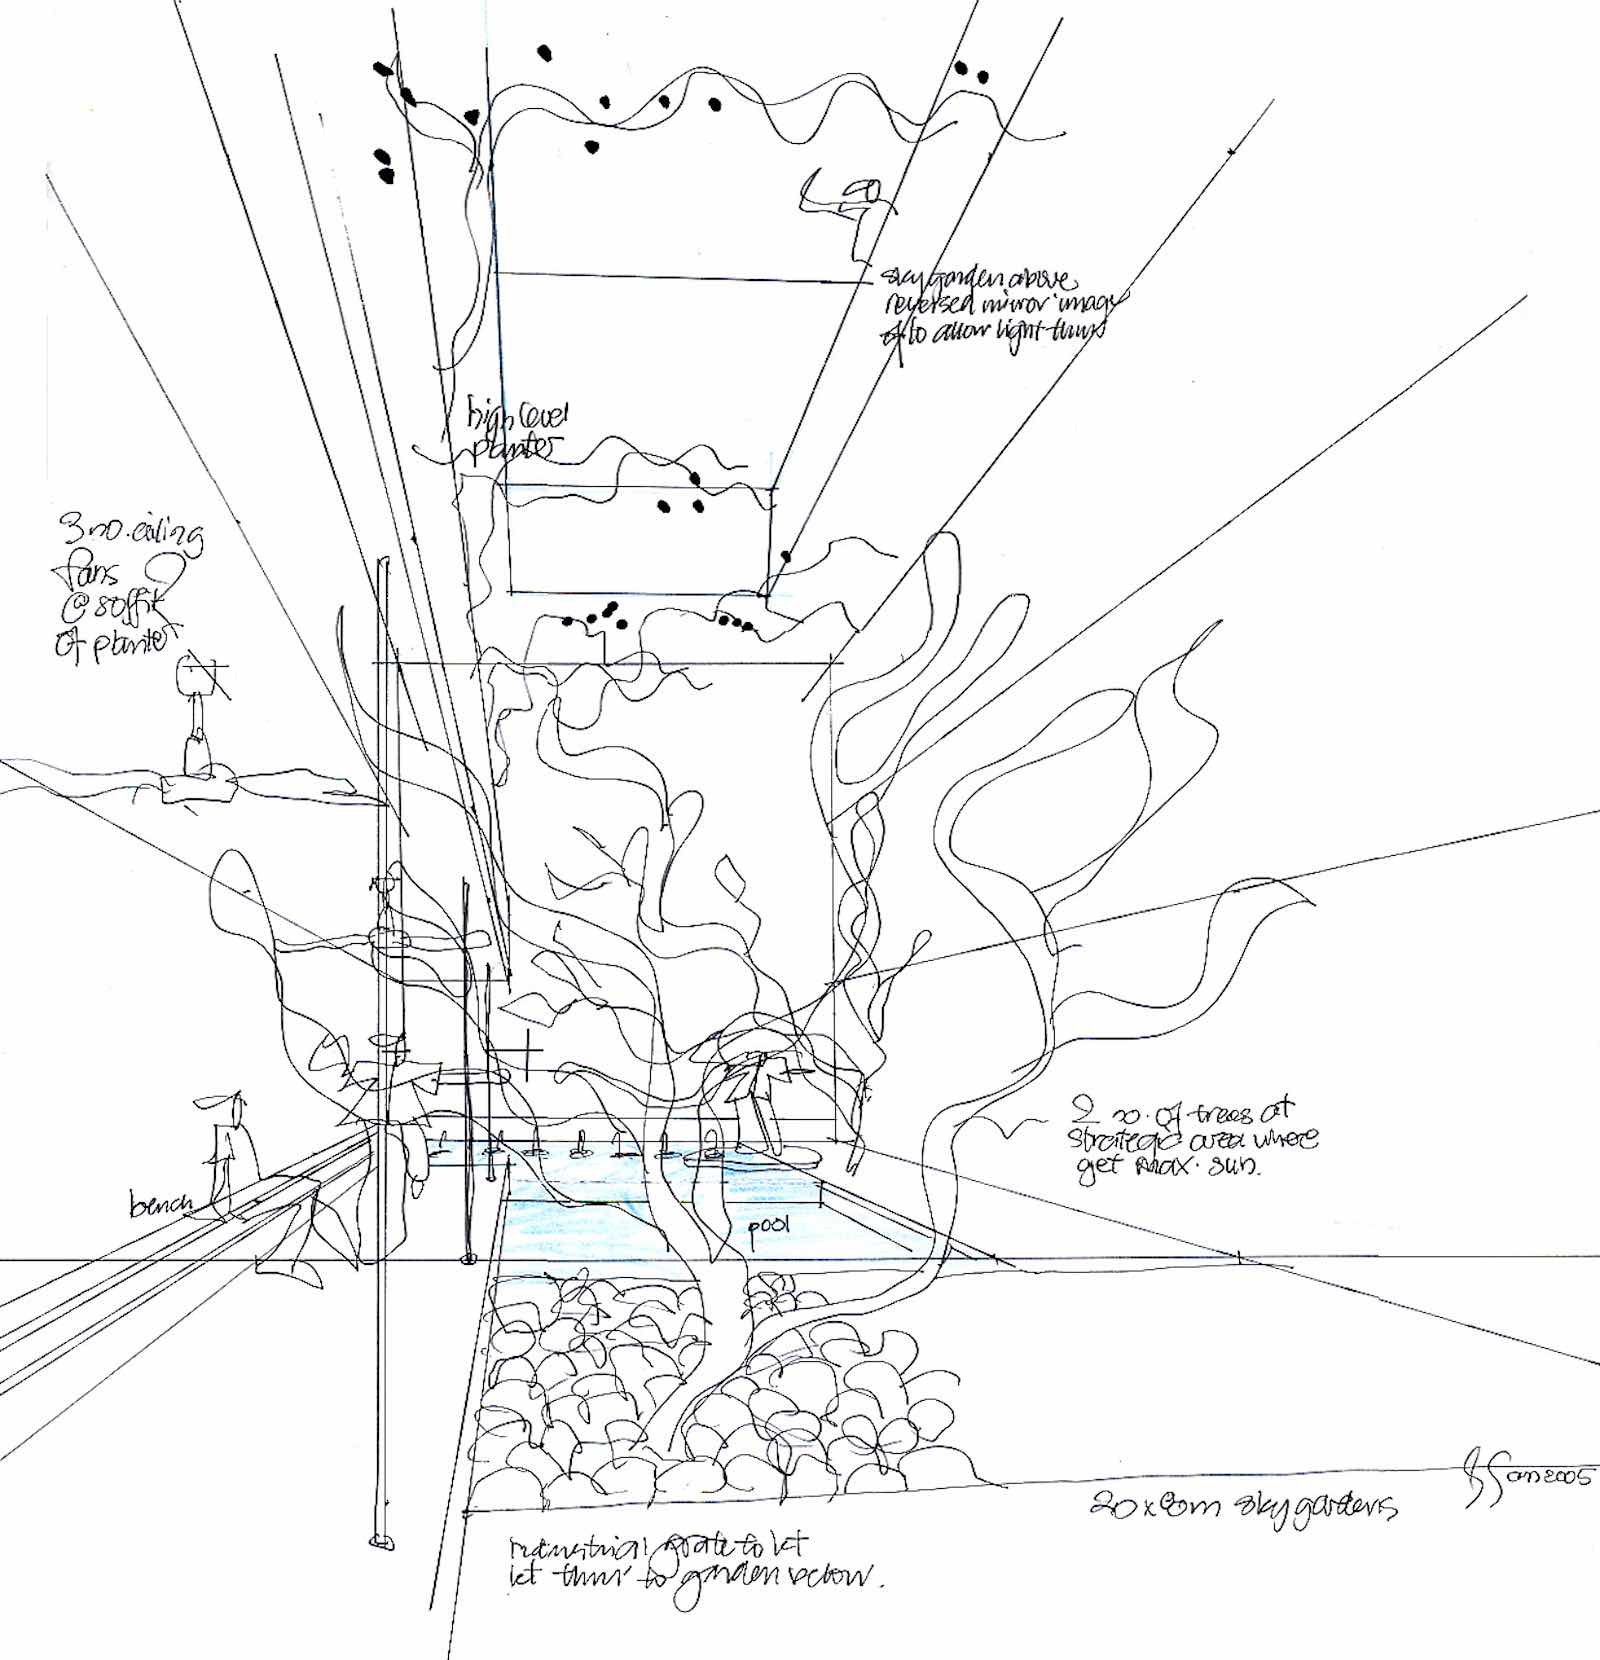 sky garden above,
reversed mirror image
to allow light thru'
high level
planter
3 no. ceiling
fans
@ soffit
of planter
2 no. of trees at
strategic area where
get max. sun.
bench
pool
Jan 2005
20 x 8m sky gardens
industrial grate to let
let thru' to garden below.